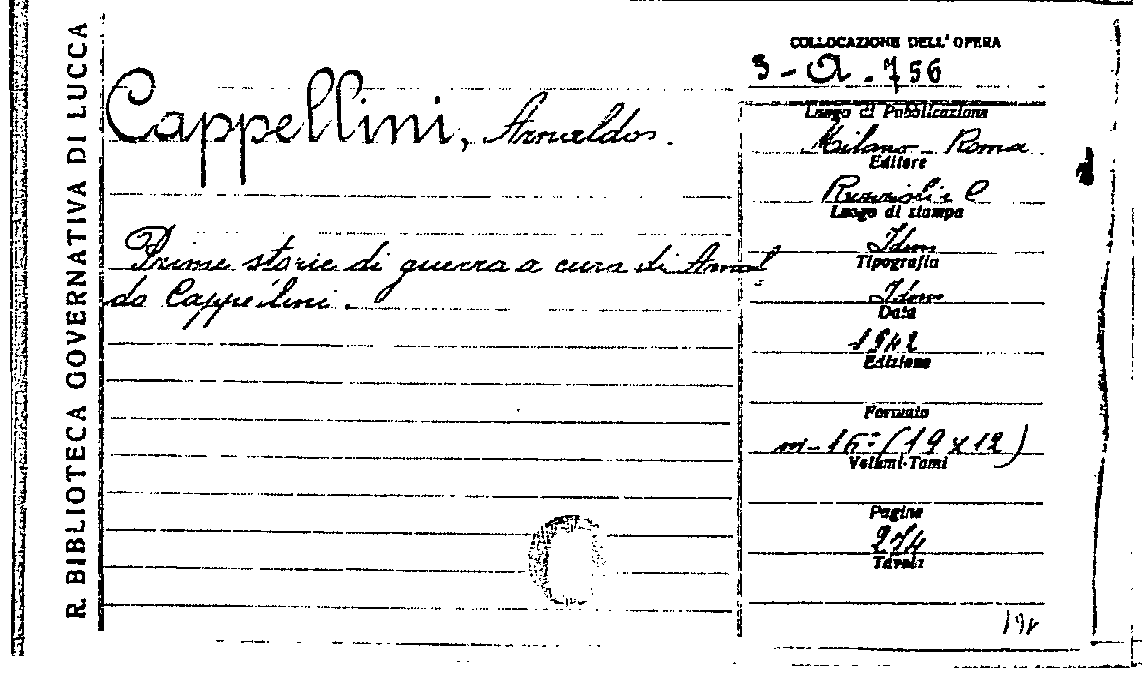 R. BIBLIOTECA GOVERNATIVA DI LUCCA
COLLOCAZIONE DELL'OPERA
3 - A. 756
Cappellini, Arnaldo.
Prime storie di guerra a cura di Arnal
do Cappellini.
Luogo di Pubblicazione
Milano - Roma
Editore
Luogo di stampa
Idem
Tipografia
Idem
Data
1942
Edizione
Formato
in-16° (19 x 12)
Volumi-Tomi
Pagine
274
Tavole